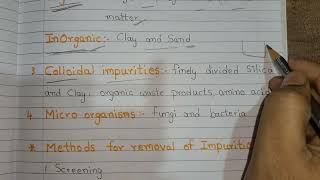 matter.
InOrganic:- Clay and Sand
3 Colloidal impurities:- finely divided Silica
and Clay, organic waste products, amino acid
4 Micro organisms:- fungi and bacteria
* Methods for removal of Impurities
1 Screening